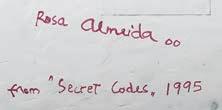 Rosa Almeida oo
from "Secret Codes" 1995